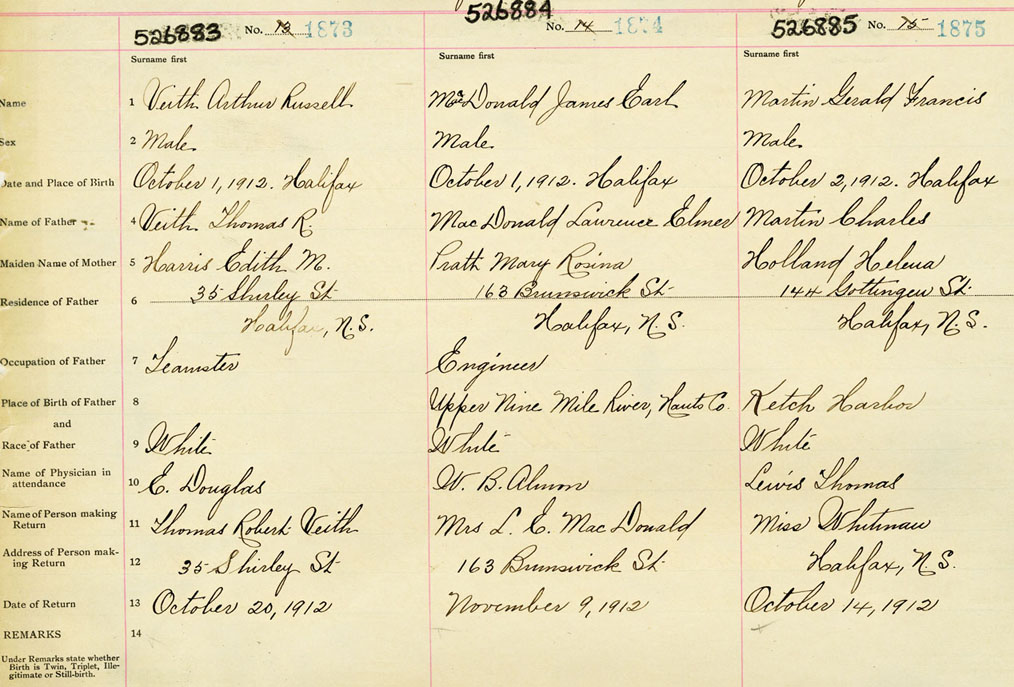 526883 No. 13 1873 526884 No. 14 1874 526885 No. 15 1875
Surname first Surname first Surname first
Name 1 Veith Arthur Russell MacDonald James Earl Martin Gerald Francis
Sex 2 Male Male Male
Date and Place of Birth 3 October 1, 1912. Halifax October 1, 1912. Halifax October 2, 1912. Halifax
Name of Father 4 Veith Thomas R. MacDonald Lawrence Elmer Martin Charles
Maiden Name of Mother 5 Harris Edith M. Prath Mary Rosina Holland Helena
Residence of Father 6 35 Shirley St 163 Brunswick St 144 Gottingen St.
Halifax, N.S. Halifax, N.S. Halifax, N.S.
Occupation of Father 7 Teamster Engineer
Place of Birth of Father 8 Upper Nine Mile River, Hants Co. Ketch Harbor
and
Race of Father 9 White White White
Name of Physician in
attendance 10 E. Douglas W. B. Almon Lewis Thomas
Name of Person making
Return 11 Thomas Robert Veith Mrs L. E. MacDonald Miss Whitman
Address of Person mak-
ing Return 12 35 Shirley St 163 Brunswick St. Halifax, N.S.
Date of Return 13 October 20, 1912 November 9, 1912 October 14, 1912
REMARKS 14
Under Remarks state whether
Birth is Twin, Triplet, Ille-
gitimate or Still-birth.